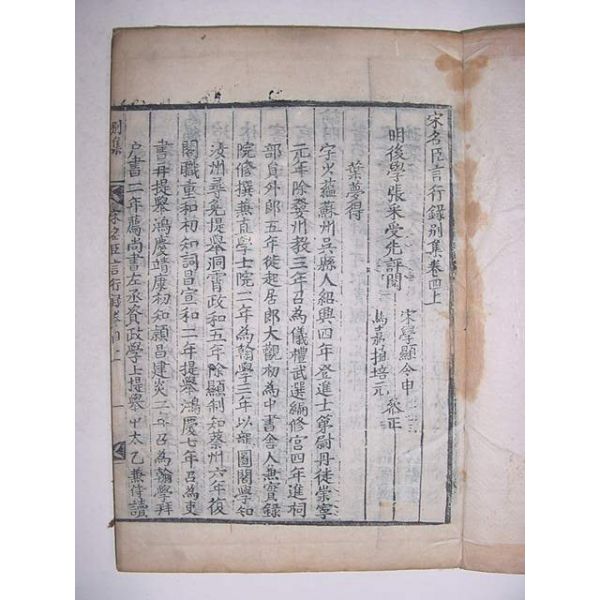 宋名臣言行錄別集卷四上
明後學張采受先評閱
宋學顯令申
馬嘉植培元 參正
葉夢得
字少蘊蘇州吳縣人紹興四年登進士第尉丹徒崇寧
元年除婺州教三年召為儀禮武選編修官四年進祠
部員外郎五年徙起居郎大觀初為中書舍人兼實錄
院修撰兼直學士院二年為翰學三年以龍圖閣學知
汝州尋免提舉洞霄政和五年除顯制知蔡州六年復
閣職重和初知潁昌宣和二年提舉鴻慶七年召為吏
書再提舉鴻慶靖康初知潁昌建炎二年召為翰學拜
戶書二年薦尚書左丞資政學士提舉中太乙兼侍讀
別集
宋名臣言行錄卷四上